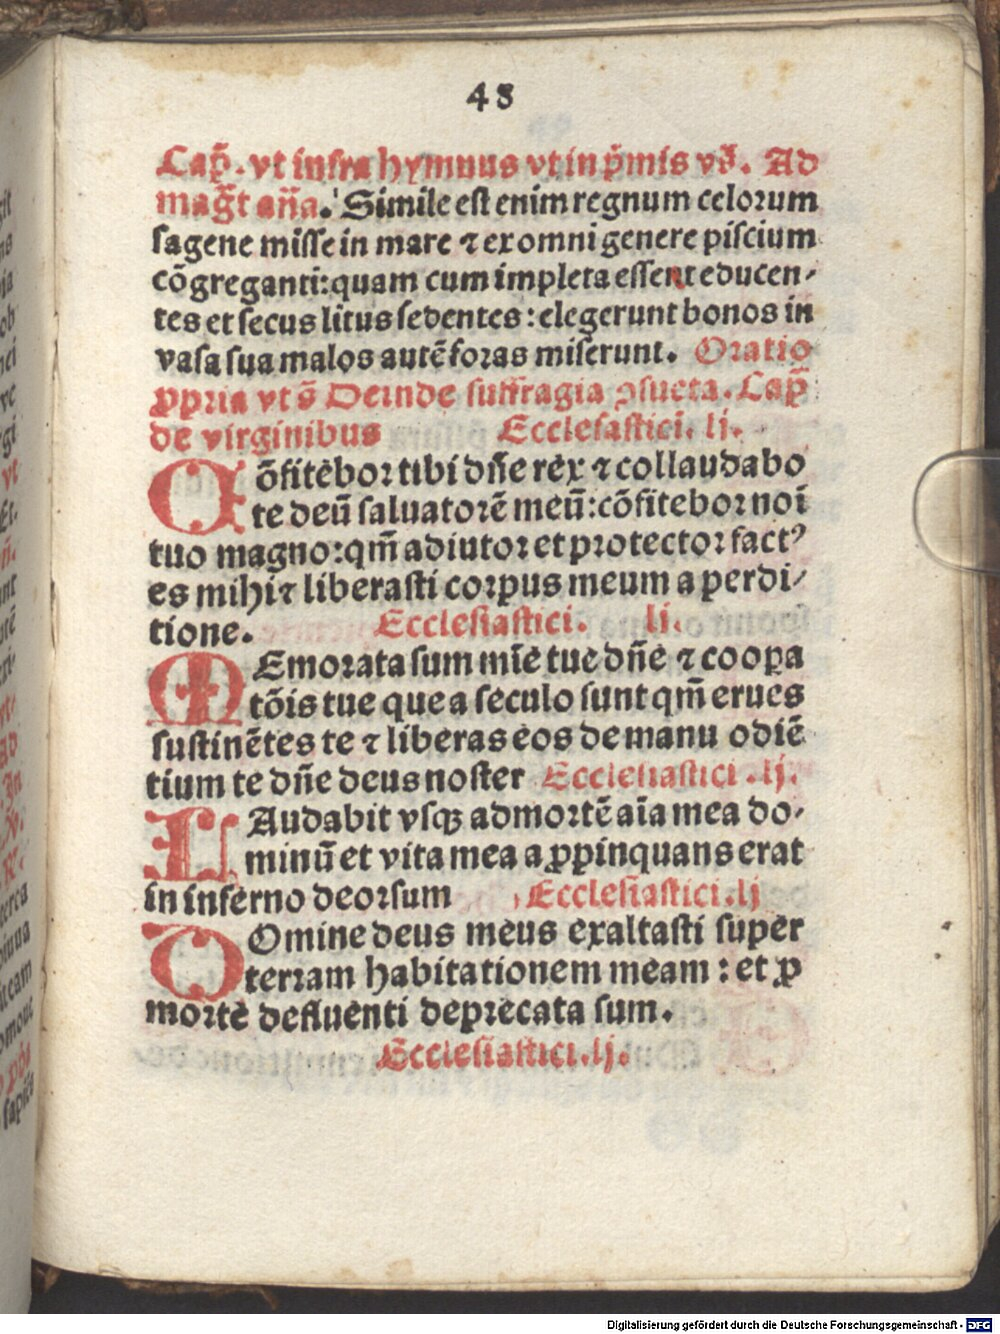 48
Cap̄. vt infra hymnus vt in p̄mis vs̄. Ad
mag̅t an̄a. Simile est enim regnum celorum
sagene misse in mare ⁊ ex omni genere piscium
cōgreganti: quam cum impleta essent educen-
tes et secus litus sedentes: elegerunt bonos in
vasa sua malos autē foras miserunt. Oratio
ꝓpria vt s̄ Deinde suffragia ↄsueta. Cap̄
de virginibus Ecclesastici. lj.
Cōfitēbor tibi dn̄e rex ⁊ collaudabo
te deū saluatorē meū: cōfitebor noī
tuo magno: qm̄ adiutor et protector factꝰ
es mihi ⁊ liberasti corpus meum a perdi-
tione. Ecclesiastici. li.
MEmorata sum mīe tue dn̄e ⁊ coopa
tōis tue que a seculo sunt qm̄ erues
sustinētes te ⁊ liberas eos de manu odiē
tium te dn̄e deus noster Ecclesiastici. lj.
LAudabit vsqꝫ ad mortē aīa mea do-
minū et vita mea aꝓpinquans erat
in inferno deorsum Ecclesiastici. lj
DOmine deus meus exaltasti super
terram habitationem meam: et ꝓ
mortē defluenti deprecata sum.
Ecclesiastici. lj.
Digitalisierung gefördert durch die Deutsche Forschungsgemeinschaft - DFG